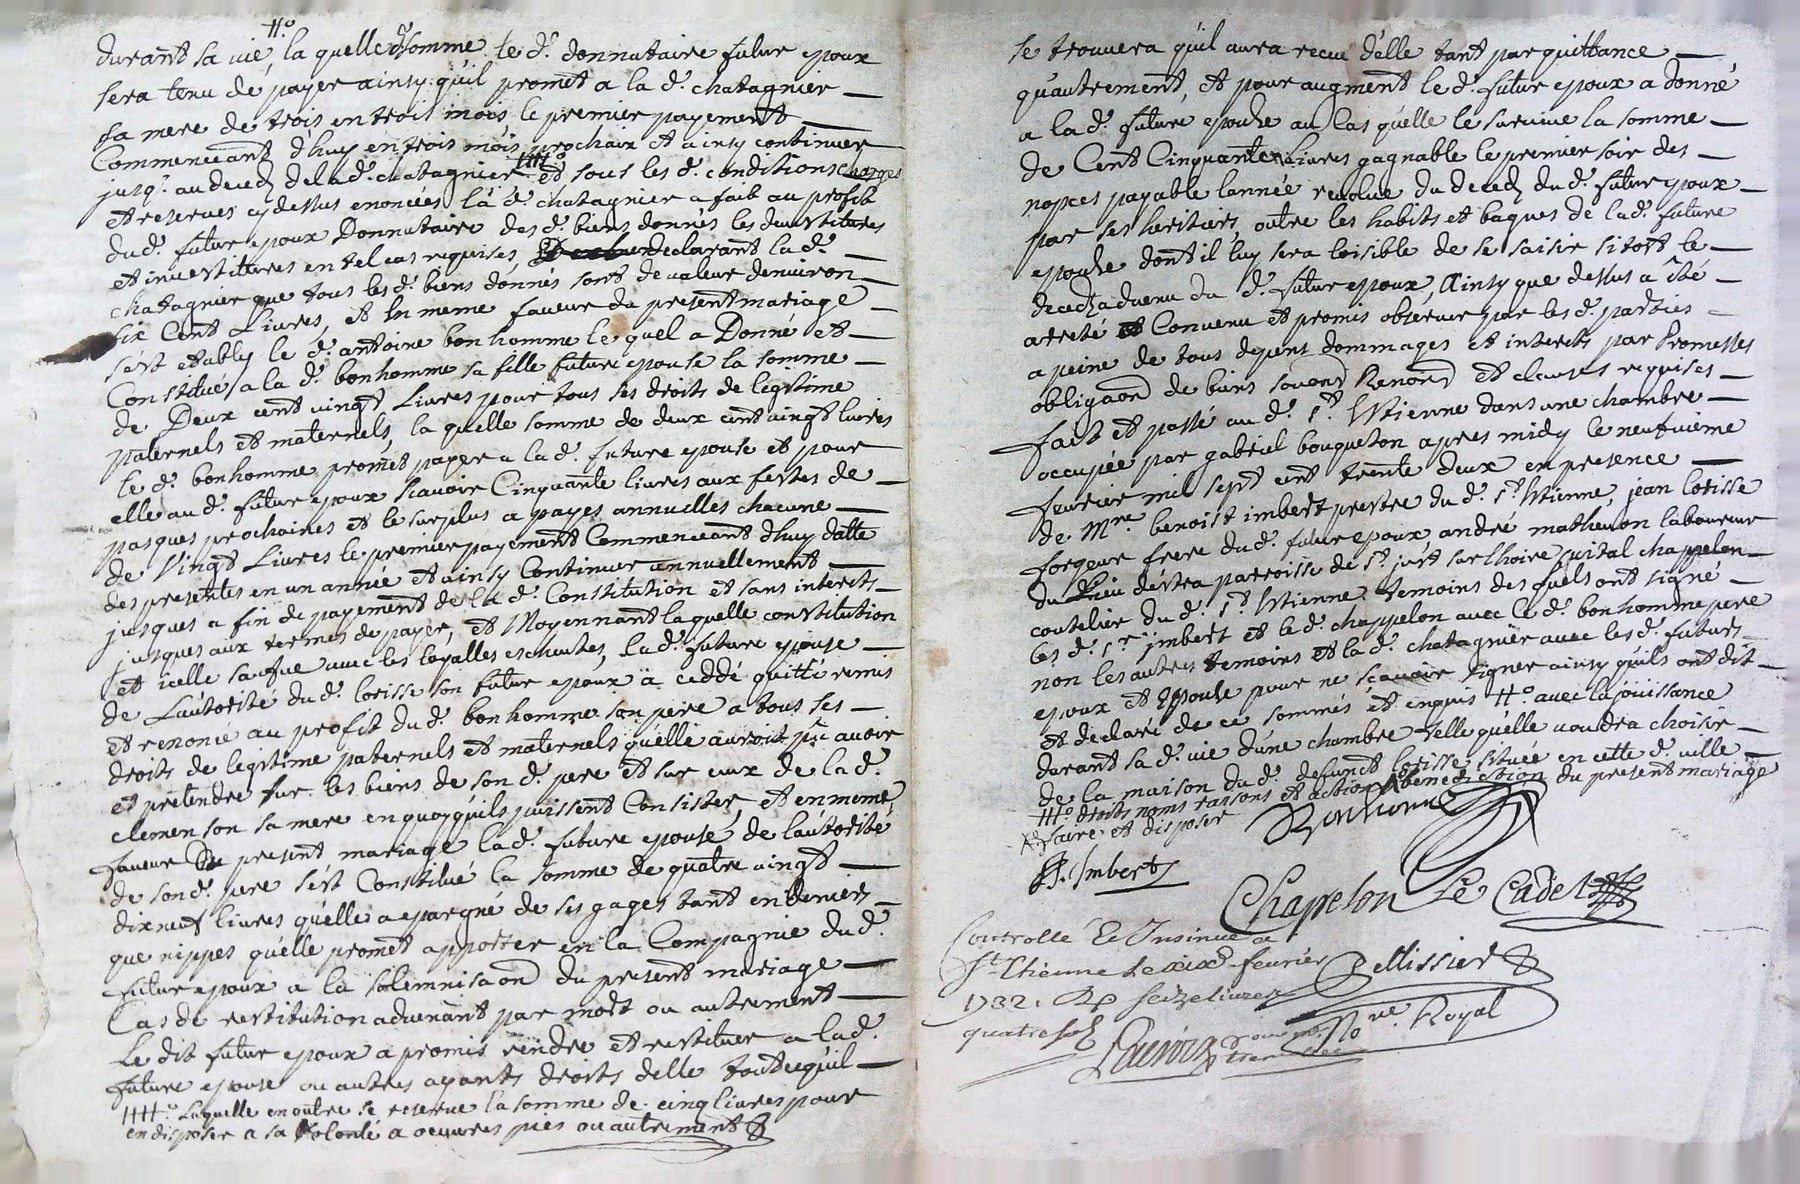 #.o
durant sa vie, la quelle d. somme le d. donnataire futur epoux
sera tenu de payer ainsy qu'il promet a la d. chatagnier
sa mere de trois en trois mois le premier payement
Commenceant d'huy en trois mois prochain et ainsy continuer
jusq. au deced de la d. chatagnier ####.o et sous les d. conditions charges
et reserves cy dessus enoncées la d. chatagnier a fait au profit
du d. futur epoux Donnataire des d. biens donnés les devestitures
et investitures en tel cas requises, Declarant la d.
chatagnier que tous les d. biens donnés sont de valeur denviron
six Cent Livres, et En meme faveur du present mariage
s'est etably le d. antoine bonhomme le quel a Donné et
Constitué a la d. bonhomme sa fille future epouse la somme
de Deux cent vingt Livres pour tous ses droits de legitime
paternels et maternels, la quelle somme de deux cent vingt livres
le d. bonhomme promet payer a la d. future epouse et pour
elle au d. futur epoux Scavoir Cinquante livres aux festes de
pasques prochaines et le surplus a payes annuelles chacune
de Vingt Livres le premier payement Commenceant d'huy datte
des presentes en un année et ainsy Continuer annuellement
jusques a fin de payement de la d. Constitution et sans interets
jusques aux termes de payer, et Moyennant la quelle constitution
et icelle saufue avec les loyalles escheutes, la d. future epouse
de L'autorité du d. lorisse son futur epoux a ceddé quitté remis
et renoncé au profit du d. bonhomme son pere a tous ses
droits de legitime paternels et maternels qu'elle auroit pu avoir
et pretendre sur les biens de son d. pere et sur ceux de la d.
clemenson sa mere en quoy qu'ils puissent Consister, et en meme
faveur Du present mariage la d. future epouse de l'autorité
de son d. pere s'est Constitué la somme de quatre vingt
dix neuf livres qu'elle a epargné de ses gages tant en deniers
que nippes qu'elle promet apporter en la Compagnie du d.
futur epoux a la solemnisaon du present mariage
Cas de restitution advenant par mort ou autrement
Le dit futur epoux a promis rendre et restituer a la d.
future epouse ou autres ayants droits delle tout ce qu'il
####.o Laquelle en outre se reserve la somme de cinq livres pour
en disposer a sa volonté a oeuvres pies ou autrement
se trouvera qu'il aura receu d'elle tant par quittance
qu'autrement, et pour augment le d. futur epoux a donné
a la d. future epouze au Cas qu'elle le survive la somme
de Cent Cinquante Livres gagnable le premier soir des
nopces payable lannée revolue du deced du d. futur epoux
par ses heritiers, outre les habits et bagues de la d. future
epouze dont il luy sera loisible de se saisir sitost le
deced advenu du d. futur epoux, Ainsy que dessus a été
arreté et Convenu et promis observer par les d. parties
a peine de tous depens dommages et interets par Promesses
obligaon de biens soumd Renond et clauses requises
fait et passé au d. St. Estienne dans une chambre
occupée par gabriel bouqueton apres midy le neufvieme
fevrier mil sept cent trente deux en presence
de Mre. benoist imbert prestre du d. St. Estienne, jean lorisse
forgeur frere du d. futur epoux andré mathevon laboureur
du lieu destra parroisse de St. just sur Lhoire, vital chappelon
coutelier du d. St. Estienne temoins des quels ont signé
les d. Sr. jmbert et le d. chappelon avec le d. bonhomme pere
non les autres temoins et la d. chatagnier avec les d. futurs
epoux et Epouse pour ne scavoir signer ainsy qu'ils ont dit
et declaré de ce sommés et enquis #.o avec la jouissance
durant sa d. vie d'une chambre telle qu'elle voudra choisir
de la maison du d. defunct lorisse située en cette d. ville
###.o droits noms raisons et action benediction du present mariage
faire et disposer
Bonhomme
Imbert
Chappelon Le Cadet
Controllé Et Insinué a
St. Etienne le xixe. fevrier
1732. Rp seize livres
quatre sols
Pellissier
Nore. Royal